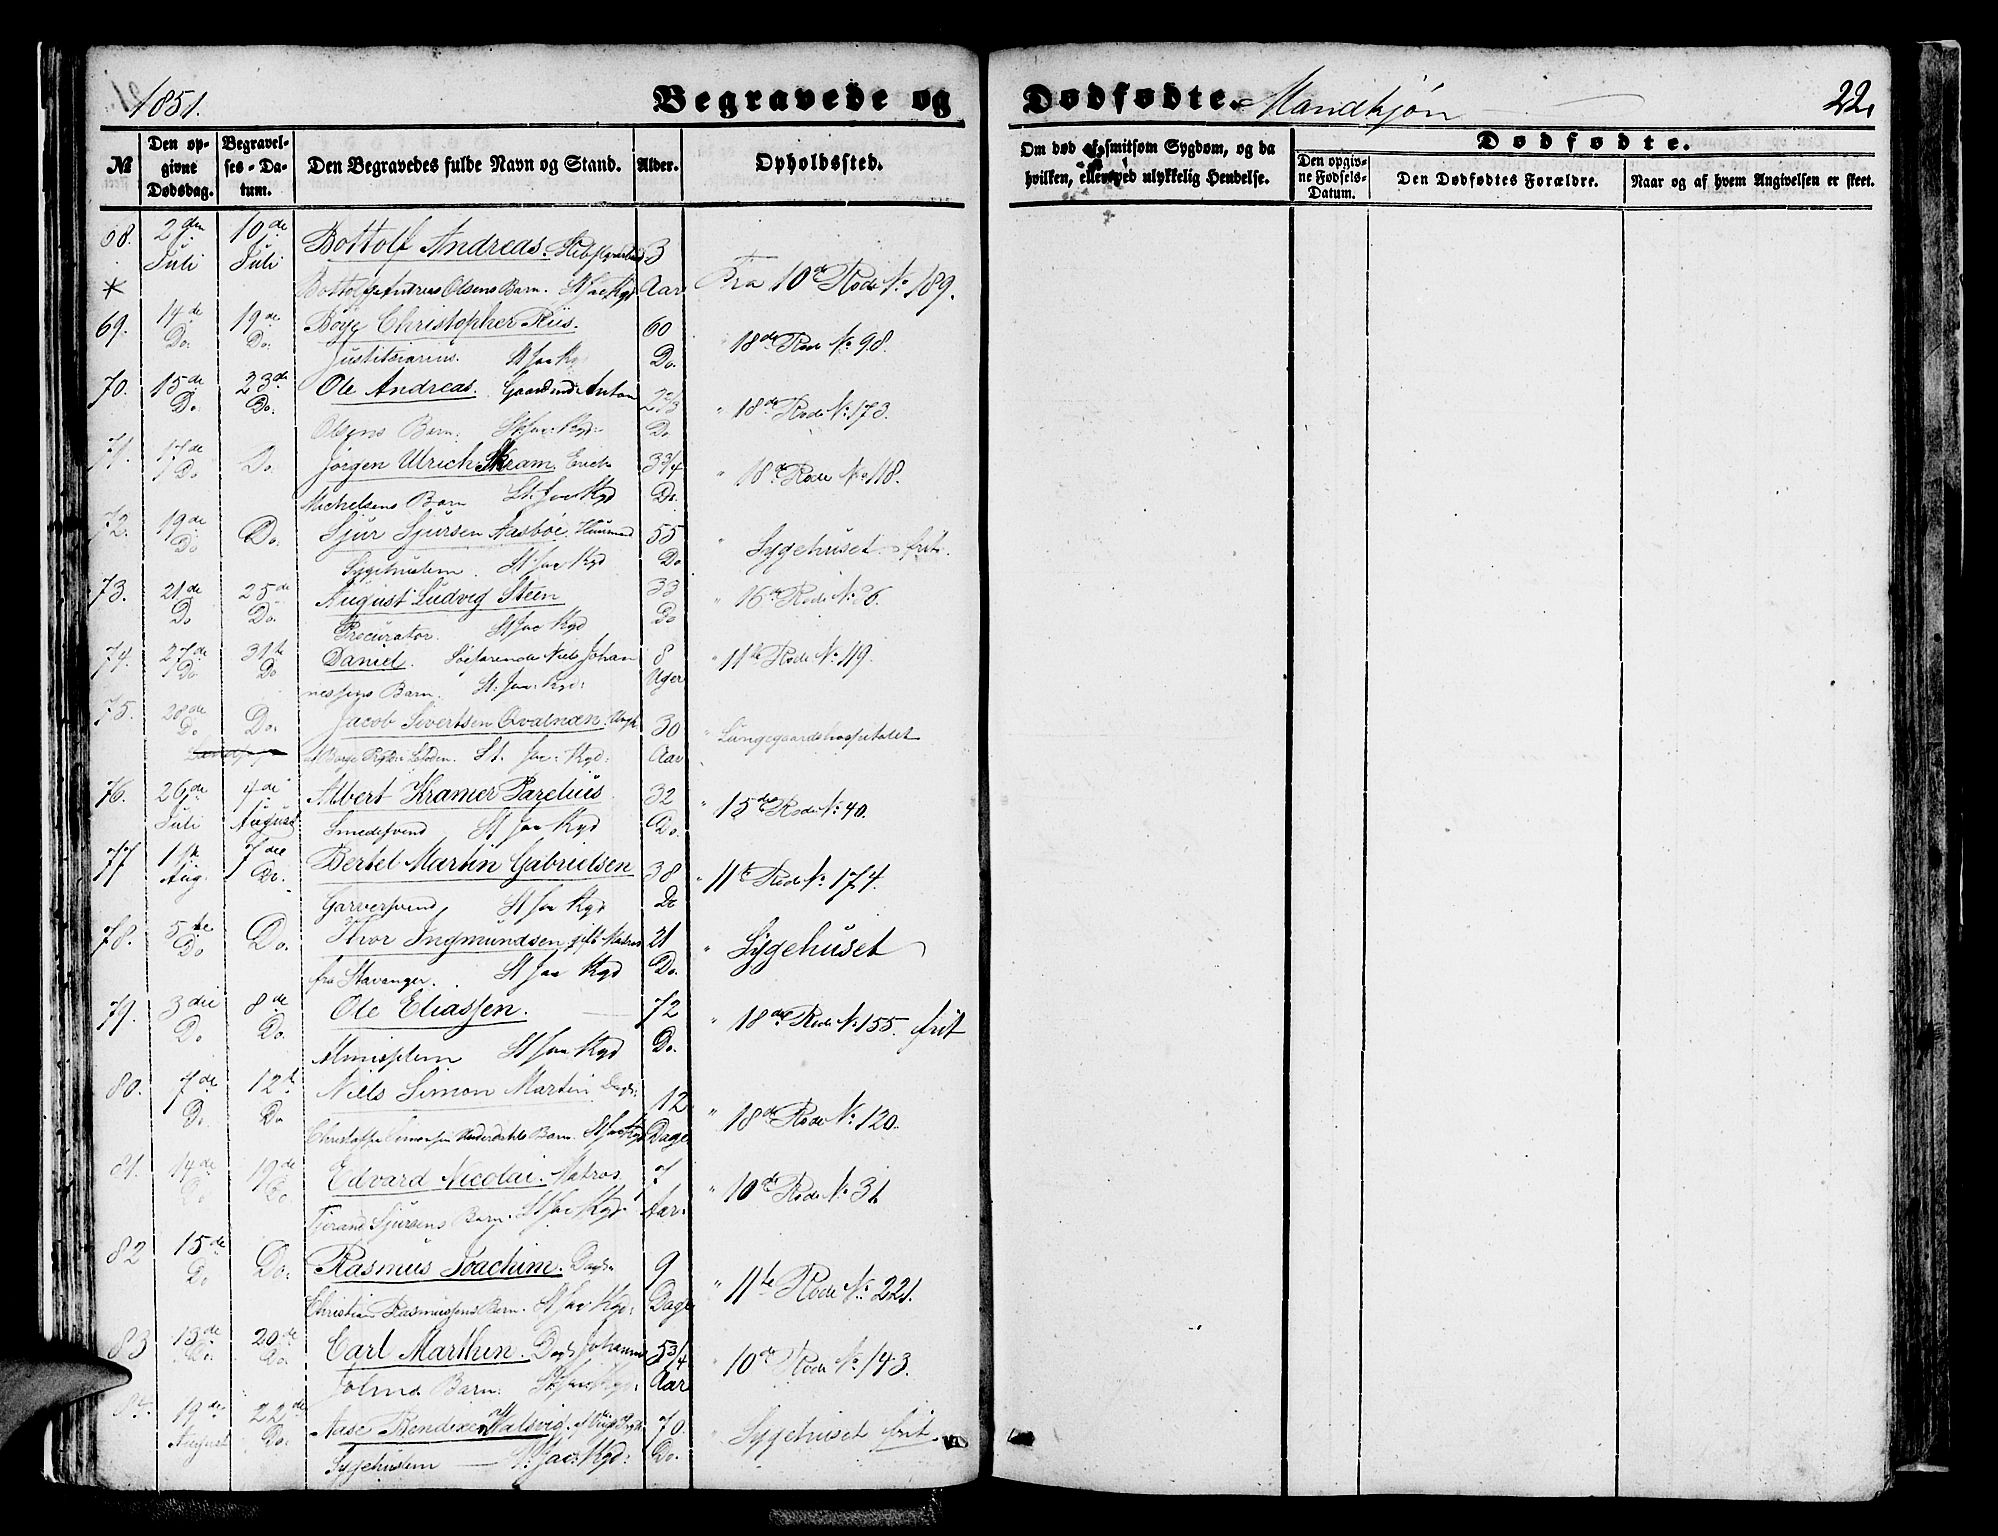 1851.
Begravede og Dødfødte. Mandkjøn
22.
№
Den opgivne Dødsdag.
Begravelses-Datum.
Den Begravedes fulde Navn og Stand.
Alder.
Opholdssted.
Om død af smitsom Sygdom, og da hvilken, eller ved ulykkelig Hendelse.
Dødfødte.
Den opgivne Fødsels-Datum.
Den Dødfødtes Forældre.
Naar og af hvem Angivelsen er skeet.
68. 2den 10de Bottolf Andreas. 3
Juli Juli Fra 10de Rode No 189.
* Bottolf Andreas Olsens Barn. St Jac Kgd Aar
69. 14de 19de Boye Christopher Riis. 60 " 18de Rode No 98.
Do. Do. Justitiarius. St Jac Kg Do.
70. 15de 23de Ole Andreas. Anton " 18de Rode No 173.
Do. Do. Olsens Barn. St Jac Kgd. Do
71. 17de Do. Jørgen Ulrich Skram. Erich 3 3/4 " 18de Rode No 118.
Do Michelsens Barn St. Jac Kgd Do.
72. 19de Do. Sjur Sjursen Aasboe. Huusmand 55 " Sygehuset frit.
Do Sygehuslem. St Jac Kgd Do
73. 21de 25de August Ludvig Steen 33 " 16de Rode No 26.
Do Do. Procurator. St Jac Kgd Do
74. 27de 31te Daniel. Søefarende Niels Johan 8 " 11te Rode No 119.
Do. Do nessens Barn. St. Jac. Kgd: Uger
75. 28de Do. Jacob Sivertsen Qvalnæn. 30 " Lungegaardshospitalet
Do St. Jac. Kgd: Aar
76. 26de 4de Albert Kramer Parelius 32 " 15de Rode No 40.
Juli August Smedesvend St Jac Kgd Do.
77 1ste 7de Bertel Martin Gabrielsen 38 " 11te Rode No 174.
Aug. Do. Garversvend St Jac Kgd Do
78. 5te Do. Thor Ingmundsen, gift Matros 21 " Sygehuset
Do fra Stavanger. St Jac Kgd Do.
79. 3die 8de Ole Eliassen. 72 " 18de Rode No 155. frit
Do Do. Almislem St Jac Kgd Do.
80. 7de 12te Niels Simon Martin Dagk: 12 " 18de Rode No 120.
Do. Do Barn. St Jac Kgd Dage
81. 14de 19de Edvard Nicolai. Matros 7 " 10de Rode No 31
Do Do. Tjerand Sjursens Barn. St Jac Kgd. Aar.
82 15de Do. Rasmus Joachim. Dagk 9 " 11te Rode No 221.
Do Christian Rasmussens Barn. St Jac Kgd: Dage
83 13de 20de Carl Marthin. Dagk Johannes 5 3/4 " 10de Rode No 143.
Do. Do. Barn. St Jac Kgd: Aar
84. 19de 22de Aase Bendixen 70. " Sygehuset frit.
August Do. Sygehuslem St: Jac: Kgd: Do.